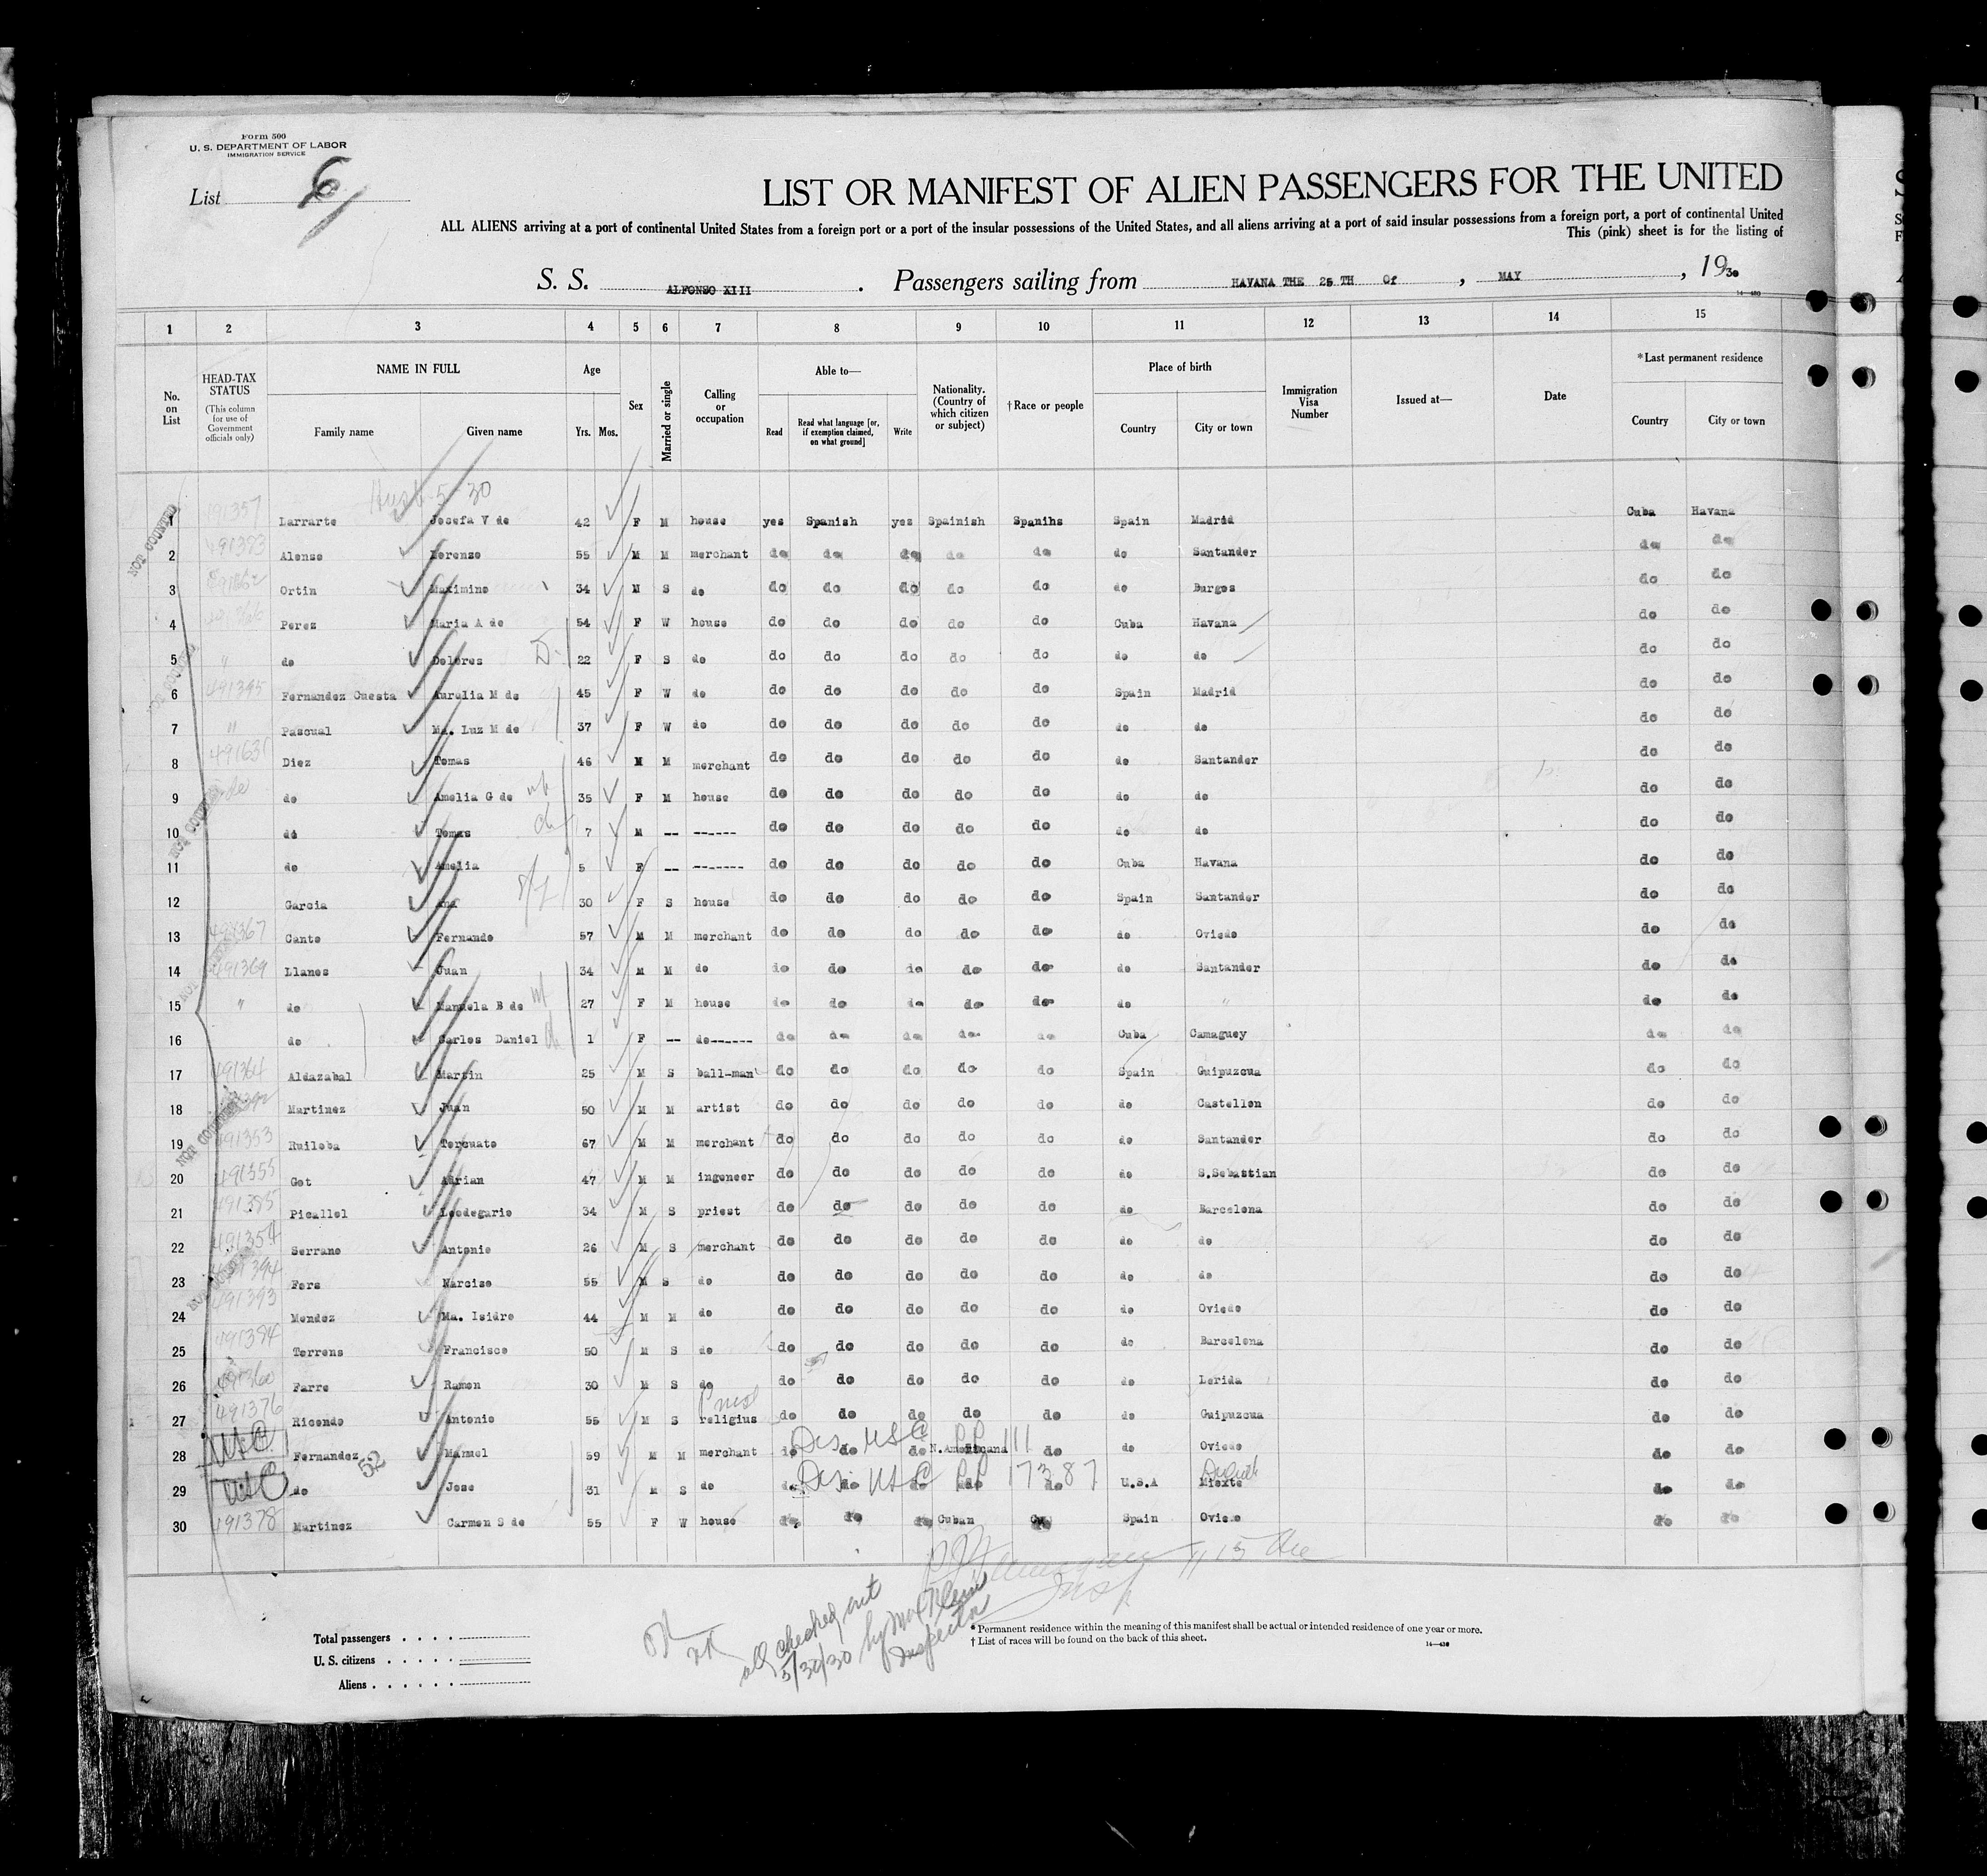 Form 500
U. S. DEPARTMENT OF LABOR
IMMIGRATION SERVICE
List 6
LIST OR MANIFEST OF ALIEN PASSENGERS FOR THE UNITED
ALL ALIENS arriving at a port of continental United States from a foreign port or a port of the insular possessions of the United States, and all aliens arriving at a port of said insular possessions from a foreign port, a port of continental United
This (pink) sheet is for the listing of
S. S. ALFONSO XIII . Passengers sailing from HAVANA THE 25 TH Of , MAY , 1930
1 2 3 4 5 6 7 8 9 10 11 12 13 14 15
No. on List HEAD-TAX STATUS (This column for use of Government officials only) NAME IN FULL Family name Given name Age Yrs. Mos. Sex Married or single Calling or occupation Able to— Read Read what language [or, if exemption claimed, on what ground] Write Nationality. (Country of which citizen or subject) †Race or people Place of birth Country City or town Immigration Visa Number Issued at— Date *Last permanent residence Country City or town
1 491357 Larrarte Josefa V de 42 F M house yes Spanish yes Spainish Spanihs Spain Madrid Cuba Havana
2 491383 Alonso Lorenzo 55 M M merchant do do do do do do Santander do do
3 Ortin Maximino 34 M S do do do do do do do Burgos do do
4 Perez Maria A de 54 F W house do do do do do Cuba Havana do do
5 " do Dolores 22 F S do do do do do do do do do do
6 491395 Fernandez Cuesta Aurelia M de 45 F W do do do do do do Spain Madrid do do
7 " Pascual Ma. Luz M de 37 F W do do do do do do do do do do
8 491631 Diez Tomas 46 M M merchant do do do do do do Santander do do
9 do do Amelia G de wf 35 F M house do do do do do do do do do
10 do Tomas ch 7 M -- ------ do do do do do do do do do
11 do Amelia 5 F -- ------- do do do do do Cuba Havana do do
12 Garcia Ana 30 F S house do do do do do Spain Santander do do
13 491367 Canto Fernando 57 M M merchant do do do do do do Oviedo do do
14 491369 Llanes Juan 34 M M do do do do do do do Santander do do
15 " do Manuela B de wf 27 F M house do do do do do do " do do
16 do Carlos Daniel ch 1 F -- do------ do do do do do Cuba Camaguey do do
17 491364 Aldazabal Martin 25 M S ball-man do do do do do Spain Guipuzcua do do
18 Martinez Juan 50 M M artist do do do do do do Castellon do do
19 491353 Ruiloba Torcuato 67 M M merchant do do do do do do Santander do do
20 491355 Got Adrian 47 M M ingeneer do do do do do do S.Sebastian do do
21 491385 Picallol Leodegario 34 M S priest do do do do do do Barcelona do do
22 491354 Serrano Antonio 26 M S merchant do do do do do do do do do
23 Fors Narciso 55 M S do do do do do do do do do do
24 491393 Mendez Ma. Isidro 44 M M do do do do do do do Oviedo do do
25 491384 Torrens Francisco 50 M S do do do do do do do Barcelona do do
26 491360 Farre Ramon 30 M S do do do do do do do Lerida do do
27 491376 Ricondo Antonio 55 M S religius do do do do do do Guipuzcua do do
28 USC Fernandez 52 Manuel 59 M M merchant do do do N.Americana do do Oviedo do do
29 USC do Jose 31 M S do do do do do do U.S.A Miexto do do
30 491378 Martinez Carmen S de 55 F W house do do do Cuban Spain Oviedo do do
NOT COUNTED
OK
all checked out
5/30/30 by
Inspector
Insp
Total passengers
U. S. citizens
Aliens
* Permanent residence within the meaning of this manifest shall be actual or intended residence of one year or more.
† List of races will be found on the back of this sheet.